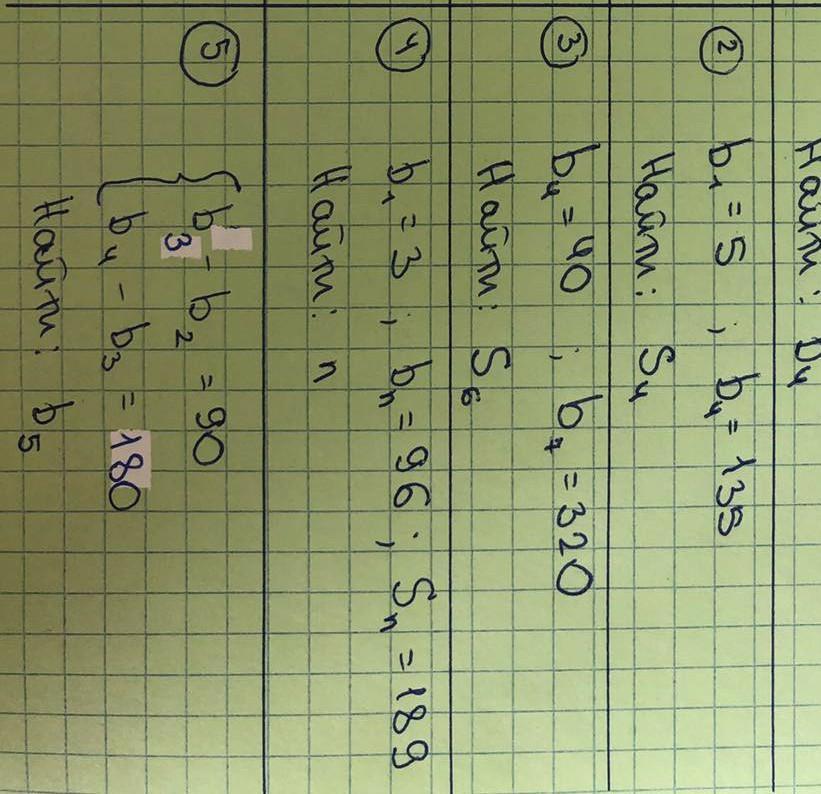 Найти: b₄
② b₁ = 5 ; b₄ = 135
Найти: S₄
③ b₄ = 40 ; b₇ = 320
Найти: S₆
④ b₁ = 3 ; bₙ = 96 ; Sₙ = 189
Найти: n
⑤ { b₃ - b₂ = 90
b₄ - b₃ = 180
Найти: b₅